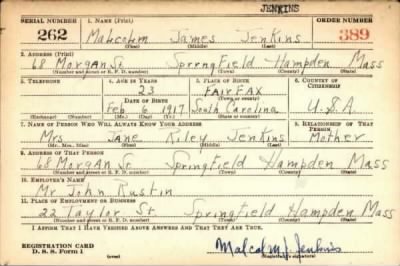 JENKINS
SERIAL NUMBER 1. NAME (Print) ORDER NUMBER
262 Malcolm James Jenkins 389
(First) (Middle) (Last)
2. ADDRESS (Print)
68 Morgan St Springfield Hampden Mass
(Number and street or R. F. D. number) (Town) (County) (State)
3. TELEPHONE 4. AGE IN YEARS 5. PLACE OF BIRTH 6. COUNTRY OF CITIZENSHIP
23 FAIRFAX
DATE OF BIRTH (Town or county)
Feb 6 1917 South Carolina U.S.A
(Exchange) (Number) (Mo.) (Day) (Yr.) (State or country)
7. NAME OF PERSON WHO WILL ALWAYS KNOW YOUR ADDRESS 8. RELATIONSHIP OF THAT PERSON
Mrs Jane Riley Jenkins Mother
(Mr., Mrs., Miss) (First) (Middle) (Last)
9. ADDRESS OF THAT PERSON
68 Morgan St Springfield Hampden Mass
(Number and street or R. F. D. number) (Town) (County) (State)
10. EMPLOYER'S NAME
Mr John Rustin
11. PLACE OF EMPLOYMENT OR BUSINESS
22 Taylor St. Springfield Hampden Mass
(Number and street or R. F. D. number) (Town) (County) (State)
I AFFIRM THAT I HAVE VERIFIED ABOVE ANSWERS AND THAT THEY ARE TRUE.
REGISTRATION CARD
D. S. S. Form 1 (over) Malcolm J. Jenkins
(Registrant's signature)